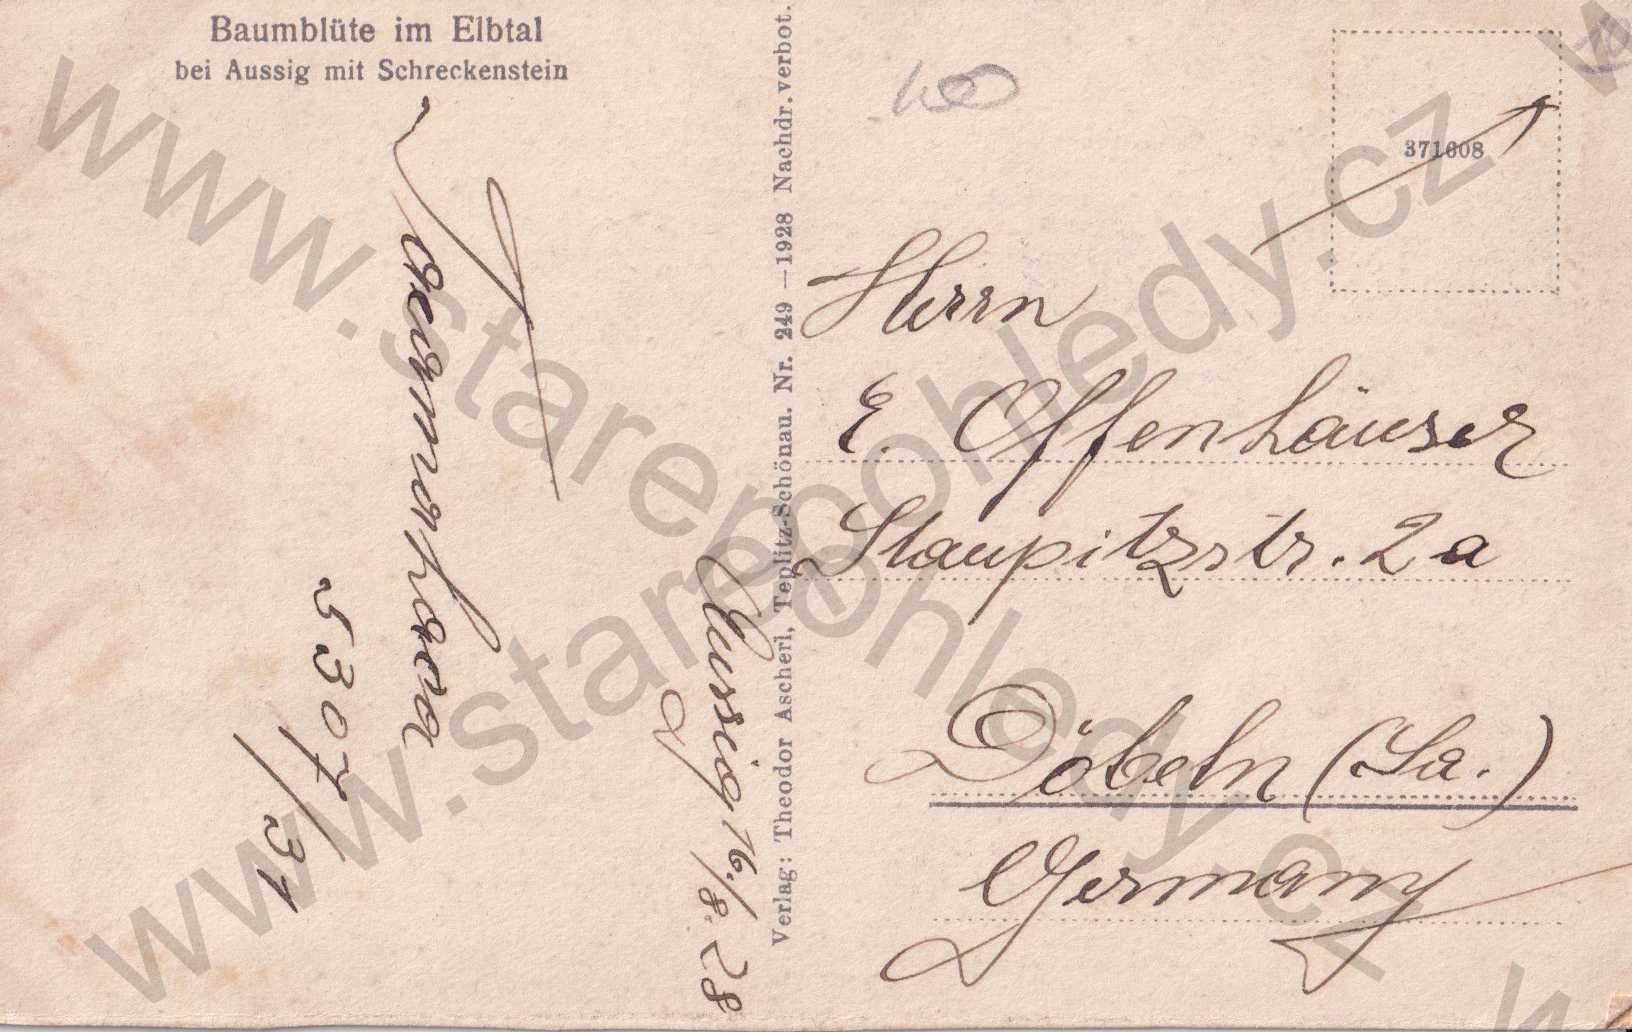 Baumblüte im Elbtal
bei Aussig mit Schreckenstein
5307/31
Aussig 16./8. 28
Verlag: Theodor Ascherl, Teplitz-Schönau. Nr. 249 —1928 Nachdr. verbot.
371608
Herrn
E. Offenhäuser
Staupitzstr. 2a
Döbeln (Sa.)
Germany
www.starepohledy.cz
www.starepohledy.cz